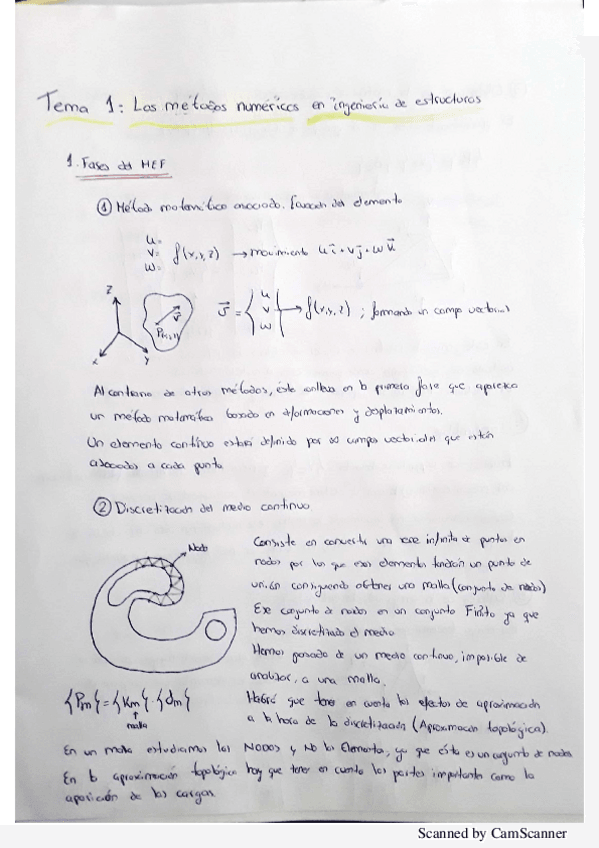 Tema 1: Los métodos numéricos en ingeniería de estructuras
1. Fases del MEF
① Método matemático asociado. Función del elemento
u=
v= f(x,y,z) → movimiento u i⃗ + v j⃗ + w k⃗
w=
z
x
y
v⃗
P(x,y,z)
δ⃗ = { u v w } → f(x,y,z) ; formando un campo vectorial
Al contrario de otros métodos, éste conlleva en la primera fase que aparezca
un método matemático basado en deformaciones y desplazamientos.
Un elemento continuo estará definido por ∞ campos vectoriales que están
asociados a cada punto
② Discretización del medio continuo
Nodo
Consiste en convertir una serie infinita de puntos en
nodos por los que esos elementos tendrán un punto de
unión consiguiendo obtener una malla (conjunto de nodos)
Ese conjunto de nodos en un conjunto Finito ya que
hemos discretizado el medio
Hemos pasado de un medio continuo, imposible de
analizar, a una malla.
{Pm} = {Km} · {dm}
malla
Habrá que tener en cuenta los efectos de aproximación
a la hora de la discretización (Aproximación topológica).
En un malla estudiamos los NODOS y NO los Elementos, ya que éste es un conjunto de nodos
En la aproximación topológica hay que tener en cuenta las partes importantes como la
aparición de las cargas
Scanned by CamScanner